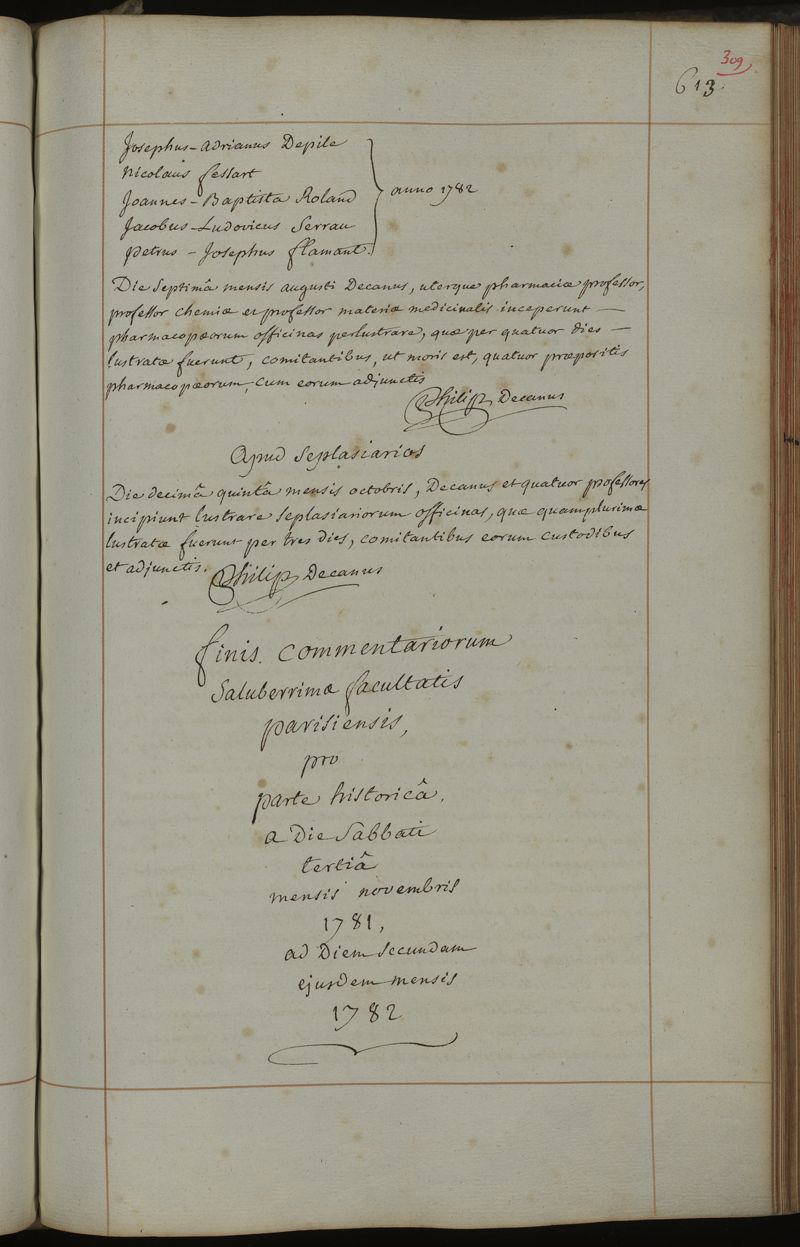 309
613.
Josephus-Adrianus Depile
Nicolaus Fessart
Joannes-Baptista Roland
Jacobus-Ludovicus Serrau
petrus-Josephus flamant.
anno 1782
Die Septimâ mensis augusti Decanus, uterque pharmaciæ professor,
professor chemiæ et professor materiæ medicinalis inceperunt —
pharmacopæorum officinas perlustrare, quæ per quatuor dies —
lustratæ fuerunt, comitantibus, ut moris est, quatuor præpositis
pharmacopæorum, cum eorum adjunctis
Philip, Decanus
Apud Seplasiarios
Die decimâ quintâ mensis octobris, Decanus et quatuor professores
incipiunt lustrare Seplasiariorum officinas, quæ quamplurimæ
lustratæ fuerunt per tres dies, comitantibus eorum custodibus
et adjunctis. Philip, Decanus
finis. commentariorum
Saluberrimæ facultatis
parisiensis,
pro
parte historicâ,
a Die Sabbati
tertiâ
mensis novembris
1781,
ad Diem Secundam
ejusdem mensis
1782